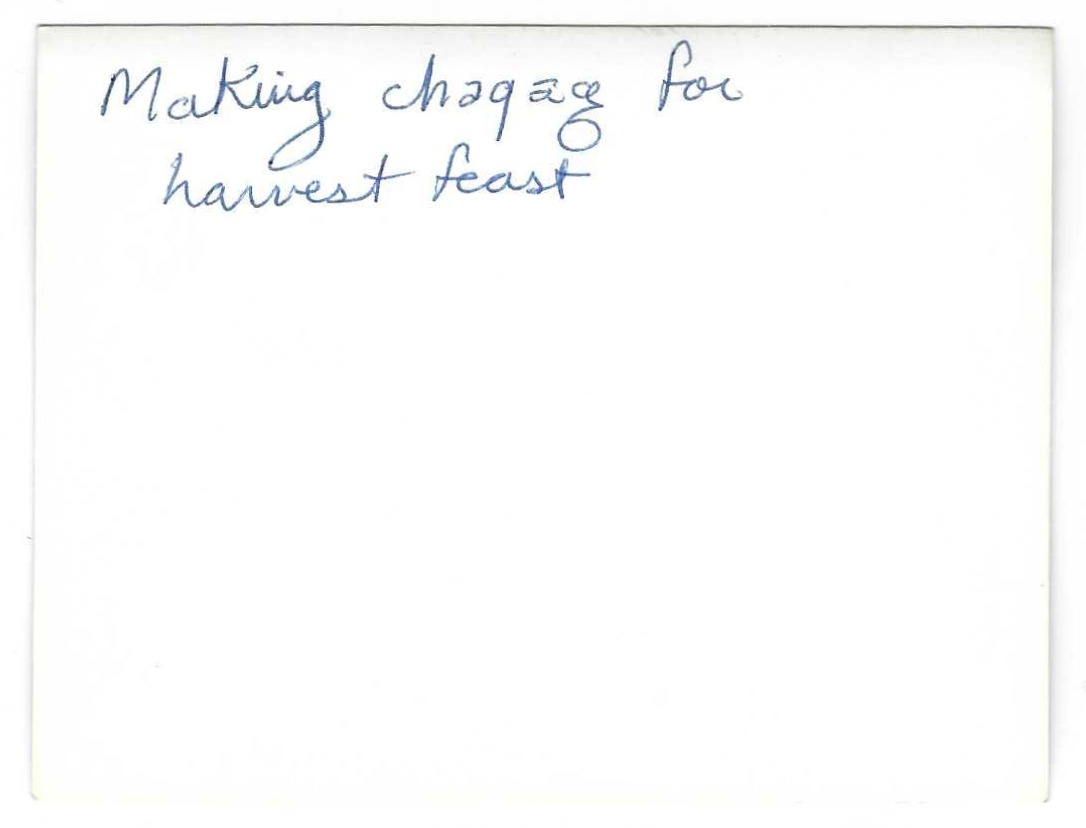 Making chagag for
harvest feast